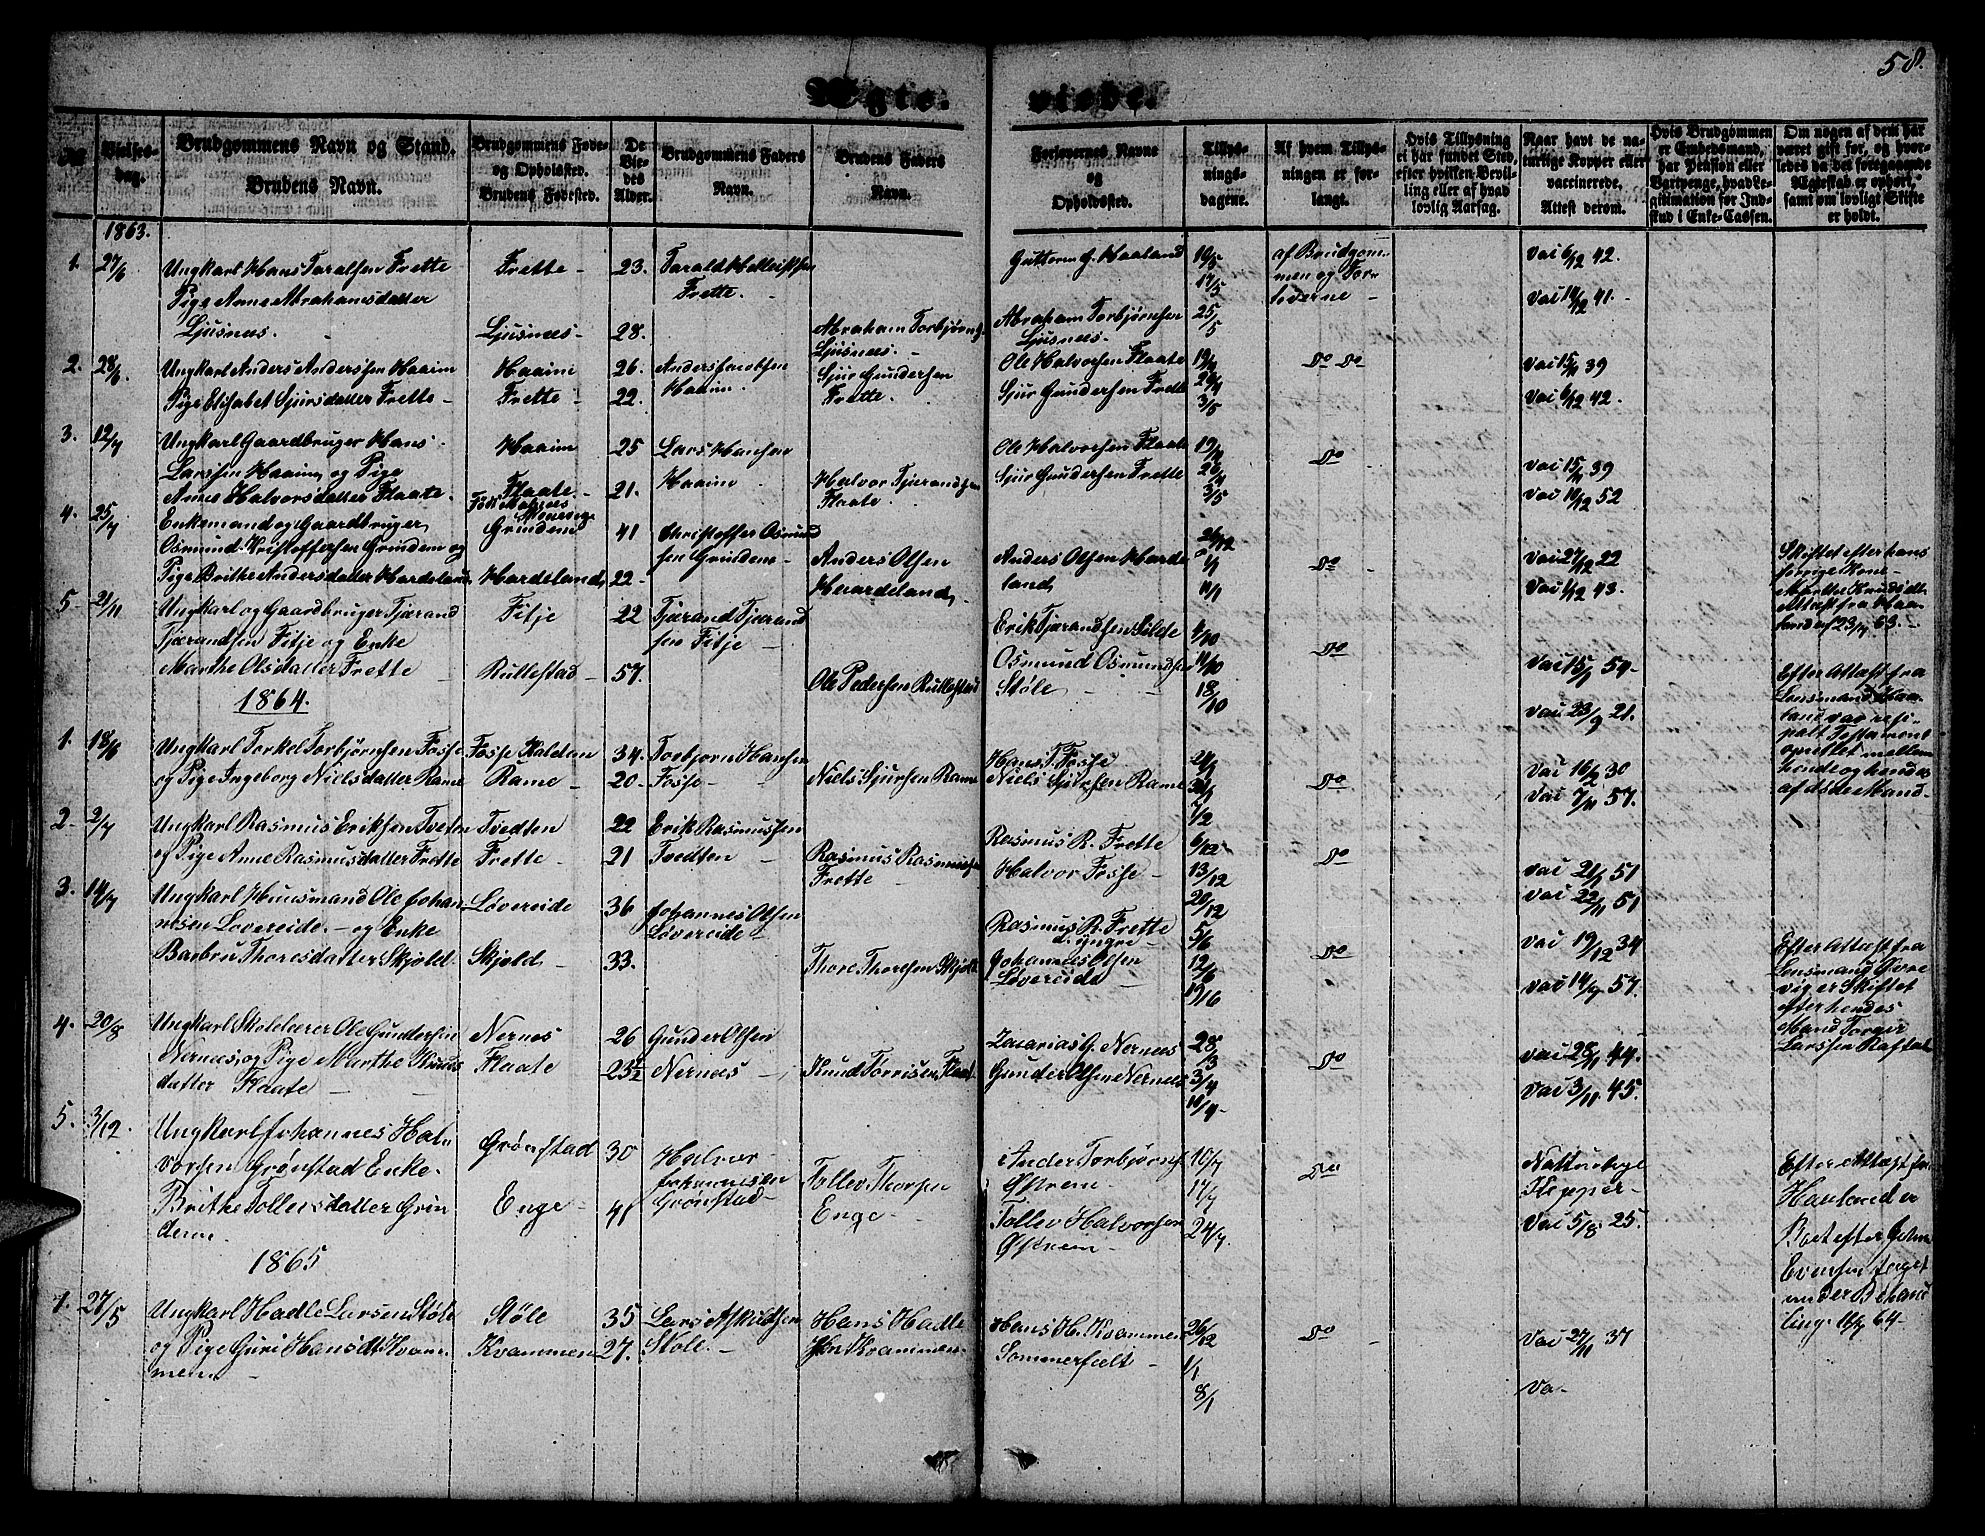 58.
Ægte- viede.
No.
Vielses-dag.
Brudgommens Navn og Stand.
Brudens Navn.
Brudgommens Føde- og Opholdssted.
Brudens Fødested.
De Viedes Alder.
Brudgommens Faders Navn.
Brudens Faders Navn.
Forlovernes Navne og Opholdssted.
Tillysningsdagene.
Af hvem Tillysningen er forlangt.
Hvis Tillysning ei har fundet Sted, efter hvilken Bevilling eller af hvad lovlig Aarsag.
Naar havt de naturlige Kopper eller vaccinerede.
Attest derom.
Hvis Brudgommen er Embedsmand, har Pension eller Vartpenge, hvad Legitimation for Indskud i Enke-Cassen.
Om nogen af dem har været gift før, og hvorledes da det foregaaende Ægteskab er ophørt, samt om lovligt Skifte er holdt.
1863.
1. 27/6 Ungkarl Hans Taralsen Frette
Pige Anne Abrahamsdatter
Ljusnes.
Frette - 23.
Ljusnæs - 28.
Tarald
Frette.
Abraham Torbjørns.
Ljusnæs. -
Guttorm G. Haaland
Abraham Torbjørnsen
Ljusnæs.
17/5
25/5
af Brudgom-
men og For-
loverne -
Vac 6/12 42.
Vac 14/12 41.
2. 28/6 Ungkarl Anders Andersen Haaim
Pige Elisabet Sjursdatter Frette -
Haaim 26.
Frette - 22.
Anders Jacobsen
Haaim.
Sjur Gundersen
Frette.
Ole Halvorsen Flaate
Sjur Gundersen Frette
19/4
26/4
3/5
Do Do
Vac 15/11 39
Vac 6/12 42.
3. 12/7 Ungkarl Gaardbruger Hans
Larssen Haaim og Pige
Anne Halvorsdatter Flaate.
Haaim 25
Flaate - 21.
Lars Hansen
Haaim
Halvor Tjerandsen
Flaate.
Ole Halvorsen Flaate
Sjur Gundersen Frette
19/4
26/4
3/5
Do
Vac 15/11 39
Vac 14/12 52
4. 25/7 Enkemand og Gaardbruger
Osmund Kristoffersen Grindem og
Pige Brithe Andersdatter Hardeland
Grindem 41
Hardeland 22
Christoffer Osmund
sen Grindem
Anders Olsen
Haardeland
Anders Olsen Harde
land
26/12
4/1
11/1
Do
Vac 27/12 22
Vac 1/12 43.
Skiftet efter hans
forrige Kone
Marthe Knudsdtr
Attest fra Haa-
land af 23/7 63.
5. 21/11 Ungkarl og Gaardbruger Tjærand
Tjærandsen Fitje og Enke
Marthe Olsdatter Frette
Fitje 22
Rullestad - 57.
Tjærand Tjærand
sen Fitje
Ole Pedersen Rullestad
Erik Tjærandsen Silde
Osmund Osmundsen
Støle
4/10
11/10
18/10
Do
Vac 15/1 54
Vac 23/9 21.
Efter Attest fra
Lensmand Haa-
land var
Testament
oprettet mellem
hende og hendes
afdøde Mand.
1864.
1. 18/6 Ungkarl Torkel Torbjørnsen Fosse
og Pige Ingeborg Nielsdatter Rame
Fosse Kalden 34.
Rame - 20.
Torbjørn Hansen
Fosse -
Niels Sjursen Rame
Hans T. Fosse
Niels Sjursen Rame
24/1
31/1
7/2
Do
Vac 16/9 30
Vac 7/11 57.
2. 2/7 Ungkarl Rasmus Eriksen Tveten
og Pige Anne Rasmusdatter Frette
Tvedten 22
Frette - 21
Erik Rasmussen
Tvedten -
Rasmus Rasmussen
Frette -
Rasmus R. Frette
Halvor Fosse -
6/12
13/12
20/12
Do
Vac 21/11 51
Vac 22/11 51
3. 14/7 Ungkarl Huusmand Ole Johan-
nesen Løvereide. - og Enke
Barbru Thoresdatter Skjold
Løvereide 36
Skjold - 33.
Johannes Olsen
Løvereide
Thore Thoresen Skjold
Rasmus R. Frette
d. yngre
Johannes Olsen
Løvereide
5/6
12/6
19/6
Do
Vac 19/12 34
Vac 14/9 57.
Efter Attest fra
Lensmand Østre
vig er Skiftet
efter hendes
Mand Torger
Larssen Raftal
4. 20/8 Ungkarl Skolelærer Ole Gundersen
Nernæs, og Pige Marthe Knuds
datter Flaate -
Nernes 26
Flaate 23½
Gunder Olsen
Nernæs -
Knud Torrisen, Flaat
Zacarias G. Nernæs
Gunder Olsen Nernæs
28/3
3/4
10/4
Do
Vac 28/11 44.
Vac 3/11 45.
5. 3/12. Ungkarl Johannes Hal
vorsen Grønstad Enke.
Brithe Tollevsdatter Grin
dem.
Grønstad 30
Enge - 41
Halvor
Johannesen
Grønstad
Tollev Thorsen
Enge -
Ander Torbjørns.
Østrem
Tollev Halvorsen
Østrem -
10/7
17/7
24/7
Do
Natturlige
Kopper -
Vac 5/8 25.
Efter Attest fra
Haaland er
Boet efter
Evensen taget
under Behand
ling 64
1865
1. 27/5 Ungkarl Hadle Larsen Støle
og Pige Guri Hansdt Kvam-
men -
Støle 35
Kvammen 27.
Lars Askildsen
Støle. -
Hans Hadle
sen Kvammen
Hans H. Kvammen
Sommerfælt -
26/12
1/1
8/1
Do
Vac 27/11 37
Va -